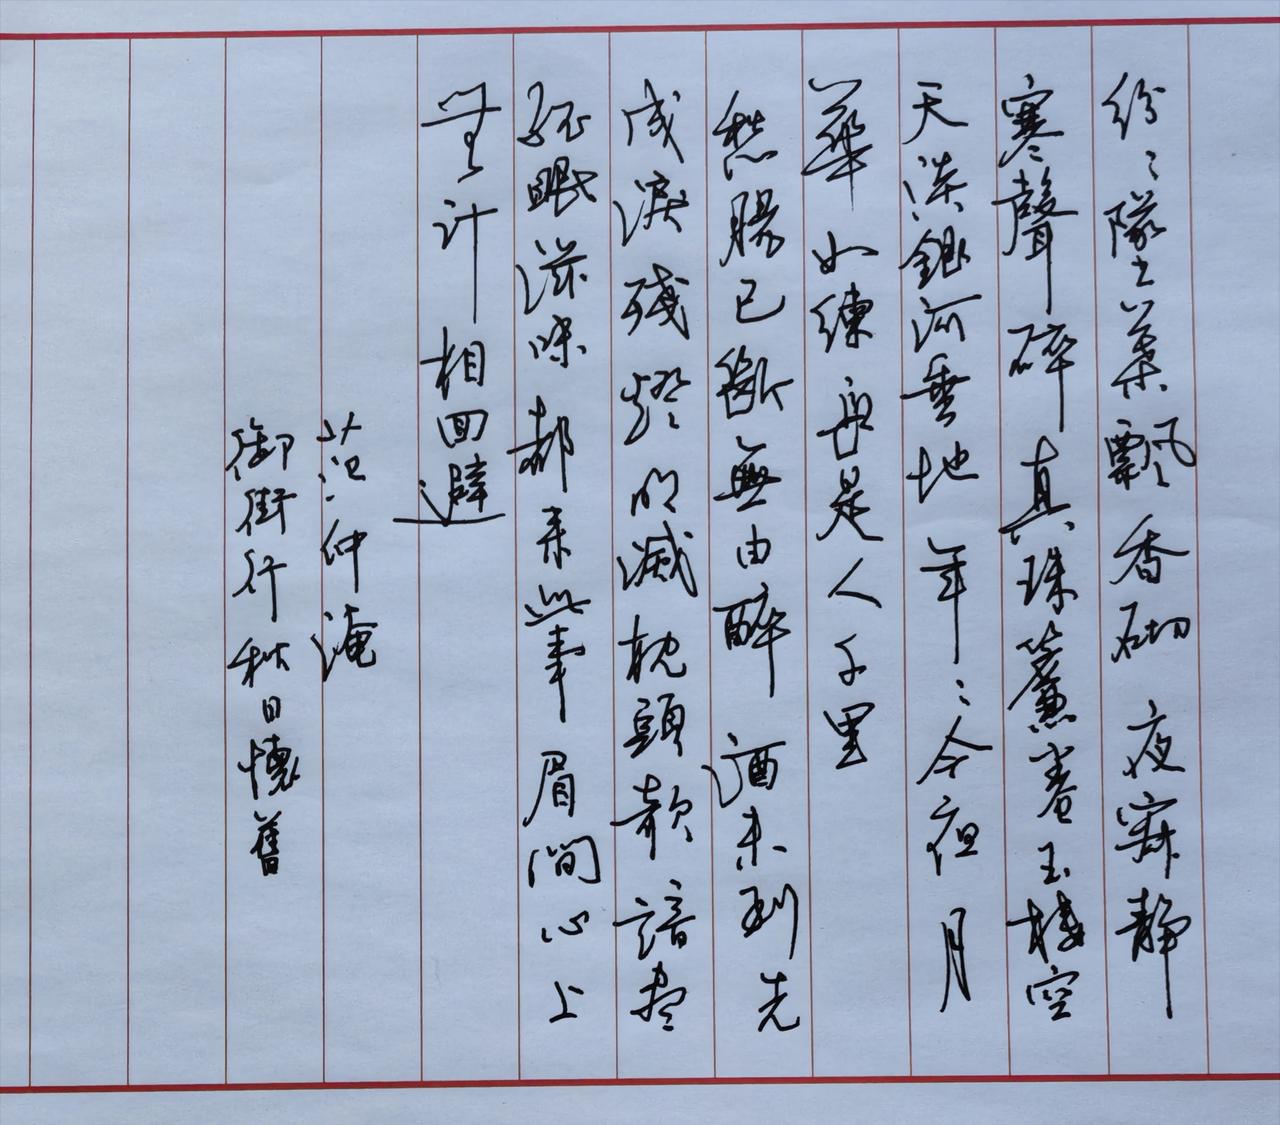 紛〻墜葉飄香砌夜寂靜
寒聲碎真珠簾卷玉樓空
天淡銀河垂地年〻今夜月
華如練長是人千里
愁腸已斷無由醉酒未到先
成淚殘燈明滅枕頭欹諳盡
孤眠滋味都來此事眉間心上
無計相回避
范仲淹
御街行秋日懷舊